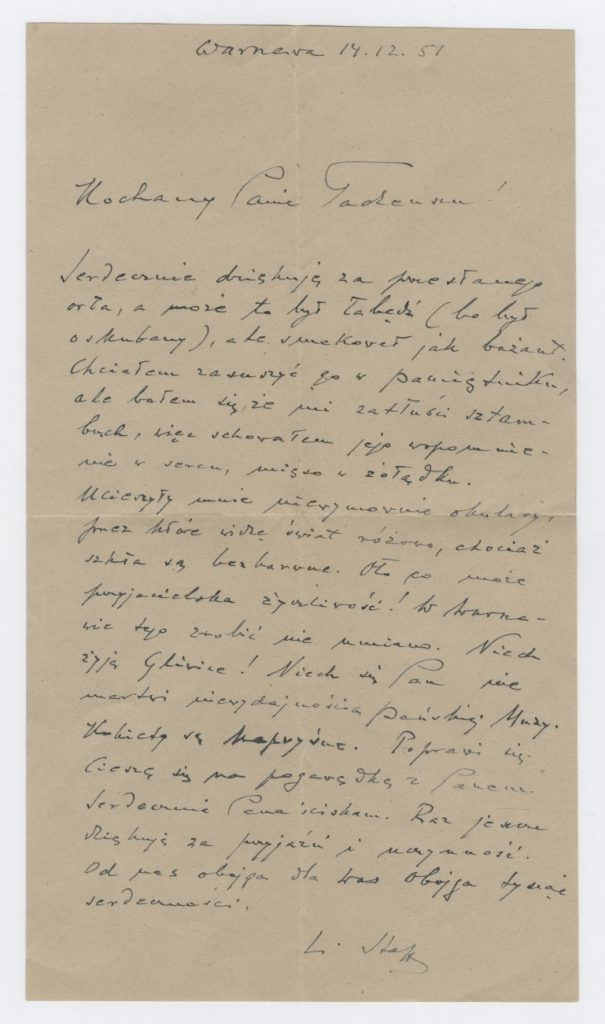 Warszawa 14.12.51
Kochany Panie Tadeuszu!
Serdecznie dziękuję za przesłanego
orła, a może to był łabędź (bo był
oskubany), ale smakował jak bażant.
Chciałem zasuszyć go w pamiętniku,
ale bałem się, że mi zatłuści sztam-
buch, więc schowałem jego wspomnie-
nie w sercu, mięso w żołądku.
Ucieszyły mnie niewymownie okulary,
przez które widzę świat różowo, chociaż
szkła są bezbarwne. Oto co może
przyjacielska życzliwość! W Warsza-
wie tego zrobić nie umiano. Niech
żyją Gliwice! Niech się Pan nie
martwi niewydajnością Pańskiej Muzy.
Kobiety są kapryśne. Poprawi się.
Cieszę się na pogawędkę z Panem.
Serdecznie Pana ściskam. Raz jeszcze
dziękuję za przyjaźń i uczynność.
Od nas obojga dla Was Obojga tysiąc
serdeczności.
L. Staff